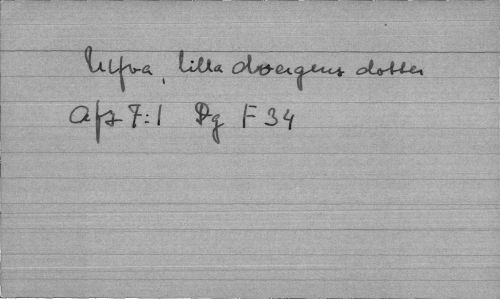 Ulfva, lilla dvergens dotter
Afz 7:1 Dg F 34